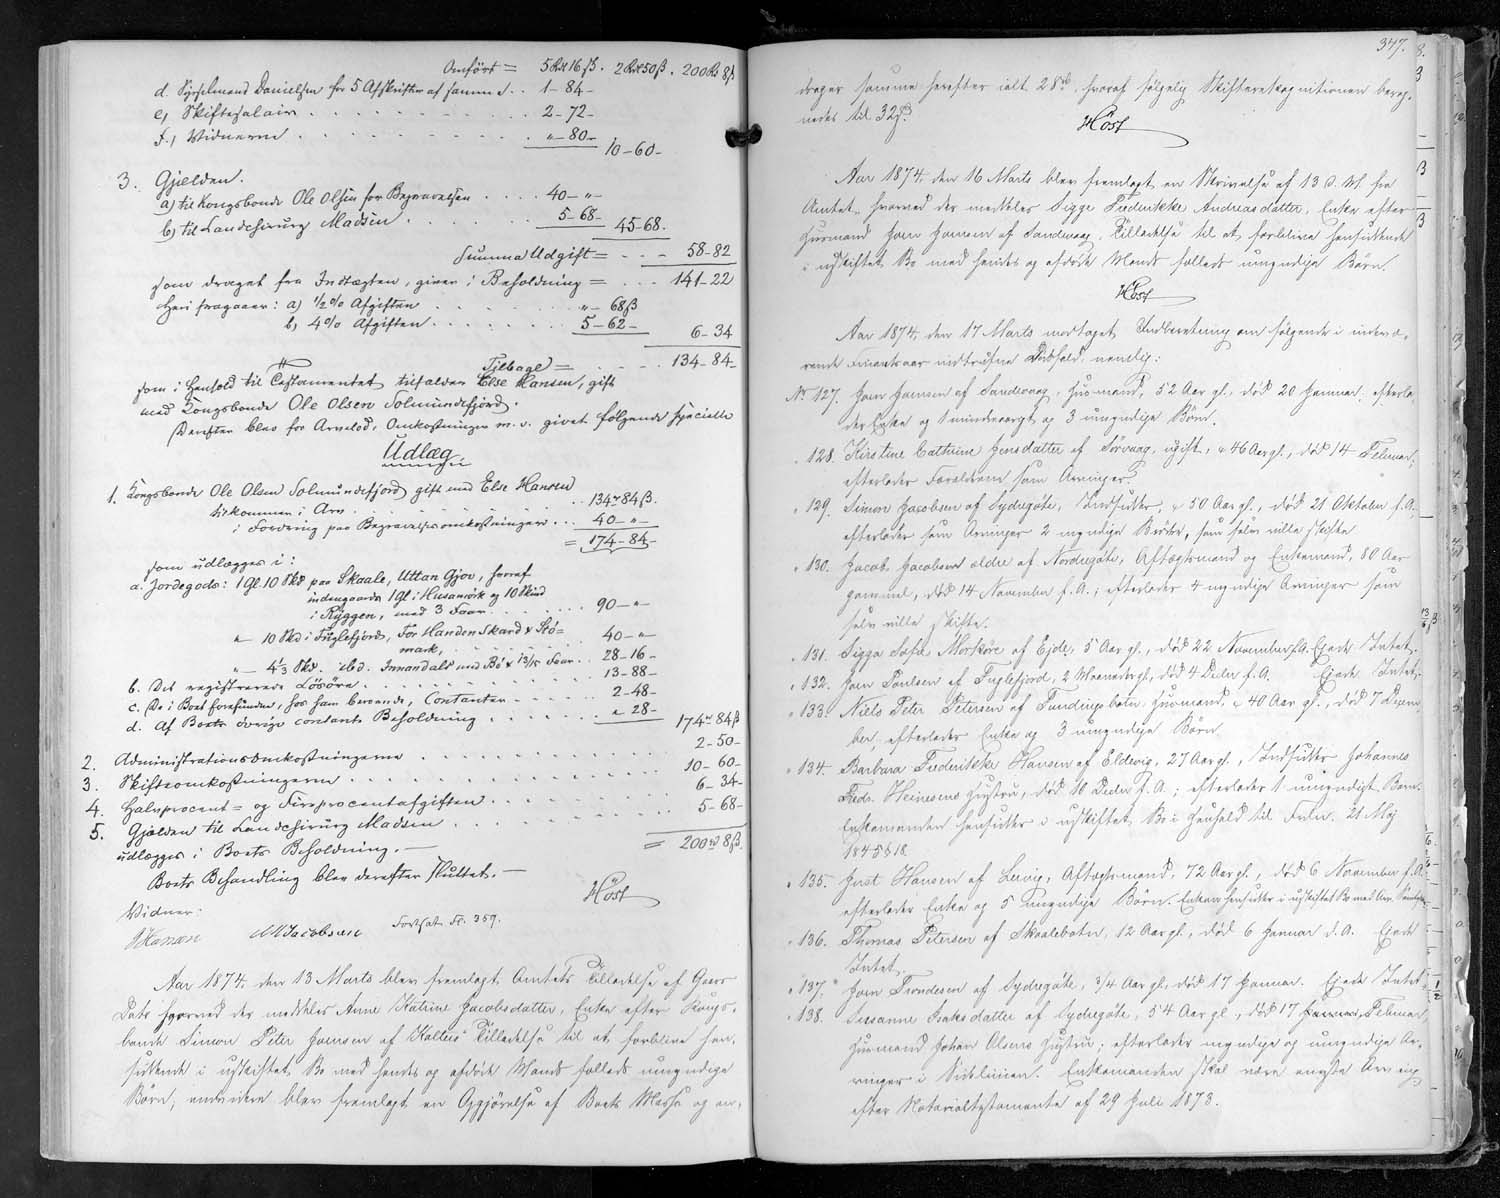 Omført = 5 Rd 16 ß. 2 Rd 50 ß. 200 Rd 8 ß
d. Sysselmand Danielsen for 5 Afskrifter af samme d. . 1-84-
e, Skiftesalair . . . 2-72-
f., Vidnerne . . . "-80-
10-60-
3. Gjælden.
a) til Kongsbonde Ole Olsen for Begravelsen . . . 40-"-
b) til Landchirurg Madsen . . . 5-68-
45-68.
Summa Udgift = . . - 58-82
som draget fra Indtægten, giver i Beholdning = . . . 141-22
Heri fragaaer: a) ½% Afgiften . . . "-68 ß
b, 4% Afgiften . . . 5-62-
6-34
Tilbage = . . . 134-84-
som i Henhold til Testamentet tilfalder Else Hansen, gift
med Kongsbonde Ole Olsen Solmundefjord.
Derefter blev for Arvelod, Omkostninger m. v. givet følgende specielle
Udlæg.
1. Kongsbonde Ole Olsen Solmundefjord gift med Else Hansen
tilkommer i Arv . . . 134 84 ß.
i Fordring paa Begravelsesomkostningerne . . . 40-"-
= 174-84-
som udlægges i:
a. Jordegods: 1 Gl 10 Skd paa Skaale, Uttan Gjov, hvoraf
indengaards 1 Gl i Husamørk og 10 Skind
i Ryggen, med 3 Faar . . . 90-"-
" 10 Skd i Fuglefjord, For Handen Skard & Stó=
mark, . . . 40-"-
"- 4⅓ Skd. ibd. Innandals med Bø & 13/15 Faar . . 28-16-
b. Det registrerede Løsøre . . . 13-88-
c. De i Boet forefundne, hos ham beroende, Contanter - 2-48-
d. Af Boets øvrige contante Beholdning . . . "28-
174 84 ß
2. Administrationsomkostningerne . . . 2-50-
3. Skifteomkostningerne . . . 10-60-
4. Halvprocent= og Fireprocentafgiften . . . 6-34-
5. Gjælden til Landchirurg Madsen . . . 5-68-
udlægges i Boets Beholdning. — = 200 8 ß.
Boets Behandling blev derefter sluttet. —
Høst
Vidner:
JHansen MJacobsen Fortsat Fo. 359.
Aar 1874, den 13 Marts blev fremlagt Amtets Tilladelse af Gaars
Dato hvorved der meddeles Anne Katrine Jacobsdatter, Enke efter Kongs-
bonde Simon Peter Joensen af "Kolter" Tilladelse til at forblive hen-
siddende i uskiftet Bo med hendes og afdøde Mands fælleds umyndige
Børn, endvidere blev fremlagt en Opgjørelse af Boets Masse og an-
347.
drager samme herefter ialt 28 , hvoraf følgelig Skifterekognitionen bereg-
nedes til 32 ß.
Høst
Aar 1874, den 16 Marts blev fremlagt en Skrivelse af 13 d. M. fra
Amtet, hvorved der meddeles Sigge Frederikke Andreasdatter, Enke efter
Huusmand Joen Joensen af Sandevaag, Tilladelse til at forblive hensiddende
i uskiftet Bo med hendes og afdøde Mands fælleds umyndige Børn.
Høst
Aar 1874, den 17 Marts modtaget Indberetning om følgende i indevæ-
rende Finantsaar indtrufne Dødsfald, nemlig:
No 127. Joen Joensen af Sandevaag, Huusmand, 52 Aar gl., død 20 Januar; efterla-
der Enke og 1 mindreaarigt og 3 umyndige Børn.
" 128. Kirstine Cathrine Jensdatter af Sørvaag, ugift, 46 Aar gl., død 14 Februar;
efterlader Forældrene som Arvinger.
" 129. Simon Jacobsen af Sydregøte, Indsidder, 50 Aar gl., død 21 Oktober f. A.,
efterlader som Arvinger 2 myndige Brødre, som selv ville skifte
" 130. Jacob Jacobsen ældre af Nordregøte, Aftægtsmand og Enkemand, 80 Aar
gammel, død 14 November f. A.; efterlader 4 myndige Arvinger som
selv ville skifte.
" 131. Sigga Sofie Mørkøre af Ejde, 5 Aar gl., død 22 November f. A. Ejede Intet.
" 132. Joen Poulsen af Fuglefjord, 2 Maaneder gl., død 4 Decbr f. A. Ejede Intet.
" 133. Niels Peter Petersen af Funding botn, Huusmand, 40 Aar gl., død 7 Decem-
ber, efterlader Enke og 3 umyndige Børn.
" 134. Barbara Frederikke Hansen af Eldevig, 27 Aar gl., Indsidder Johannes
Fredr. Heinesens Hustru, død 10 Decbr f. A.; efterlader 1 umyndigt Barn.
Enkemanden hensidder i uskiftet Bo i Henhold til Frdn. 21 Maj
1845 § 18.
" 135. Just Hansen af Lervig, Aftægtsmand, 72 Aar gl., død 6 November f. A.
efterlader Enke og 5 myndige Børn. Enken hensidder i uskiftet Bo med Arv.
" 136. Thomas Petersen af Skaalebotn, 12 Aar gl., død 6 Januar d. A. Ejede
Intet.
" 137. Joen Trondesen af Sydregøte, 3/4 Aar gl., død 17 Januar. Ejede Intet.
" 138. Susanne Isaksdatter af Sydregøte, 54 Aar gl., død 17 Februar,
Huusmand Johan Olsens Hustru; efterlader myndige og umyndige Ar-
vinger i Sidelinien. Enkemanden skal være eneste Arving
efter Notarialtestamente af 29 Juli 1873.